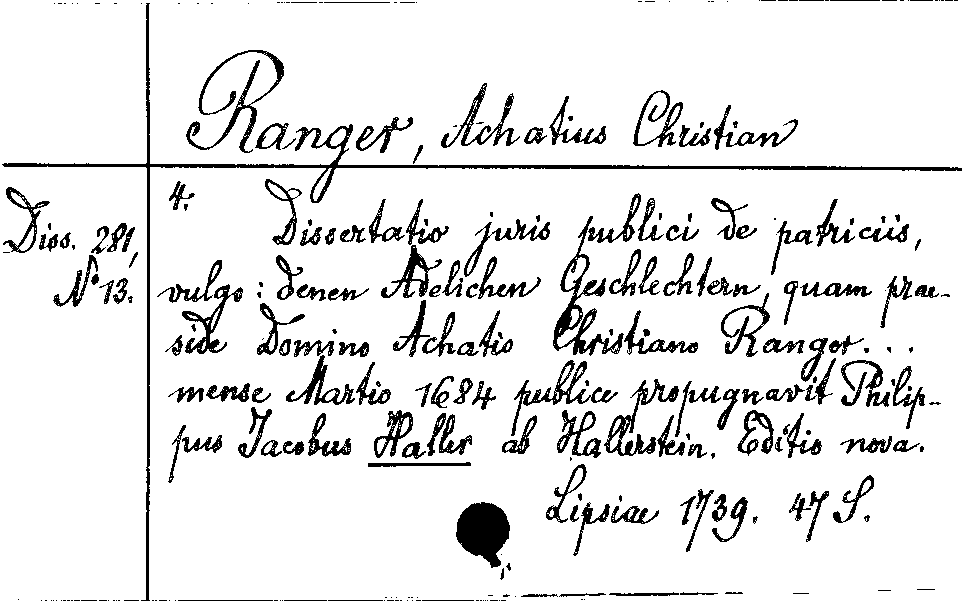 Ranger, Achatius Christian
4.
Diss. 281,
N° 13.
Dissertatio juris publici de patriciis,
vulgo: denen Adelichen Geschlechtern, quam prae-
side Domino Achatio Christiano Ranger...
mense Martio 1684 publice propugnavit Philip-
pus Jacobus Haller ab Hallerstein. Editio nova.
Lipsiae 1739. 47 S.